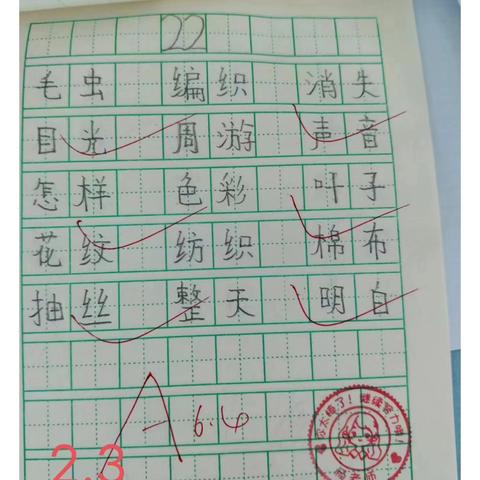 22
毛虫 编织 消失
目光 周游 声音
怎样 色彩 叶子
花纹 纺织 棉布
抽丝 整天 明白
A 6.4
2.3
你太棒了！继续努力哦！
老师